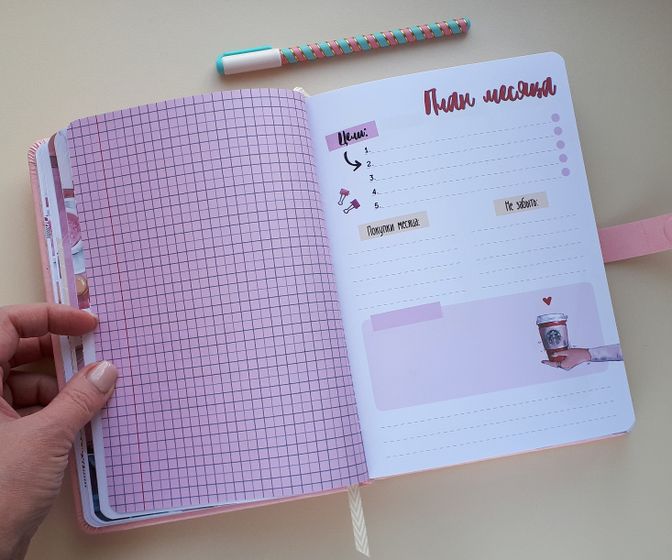 План месяца
Цели:
1.
2.
3.
4.
5.
Покупки месяца:
Не забыть: